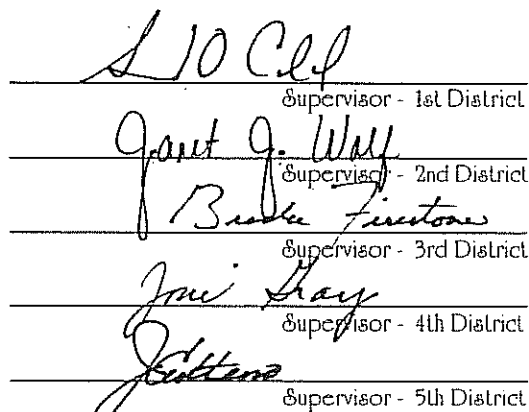 Supervisor - 1st District
Janet J. Wolf
Supervisor - 2nd District
Brooks Firestone
Supervisor - 3rd District
Joni Gray
Supervisor - 4th District
Supervisor - 5th District